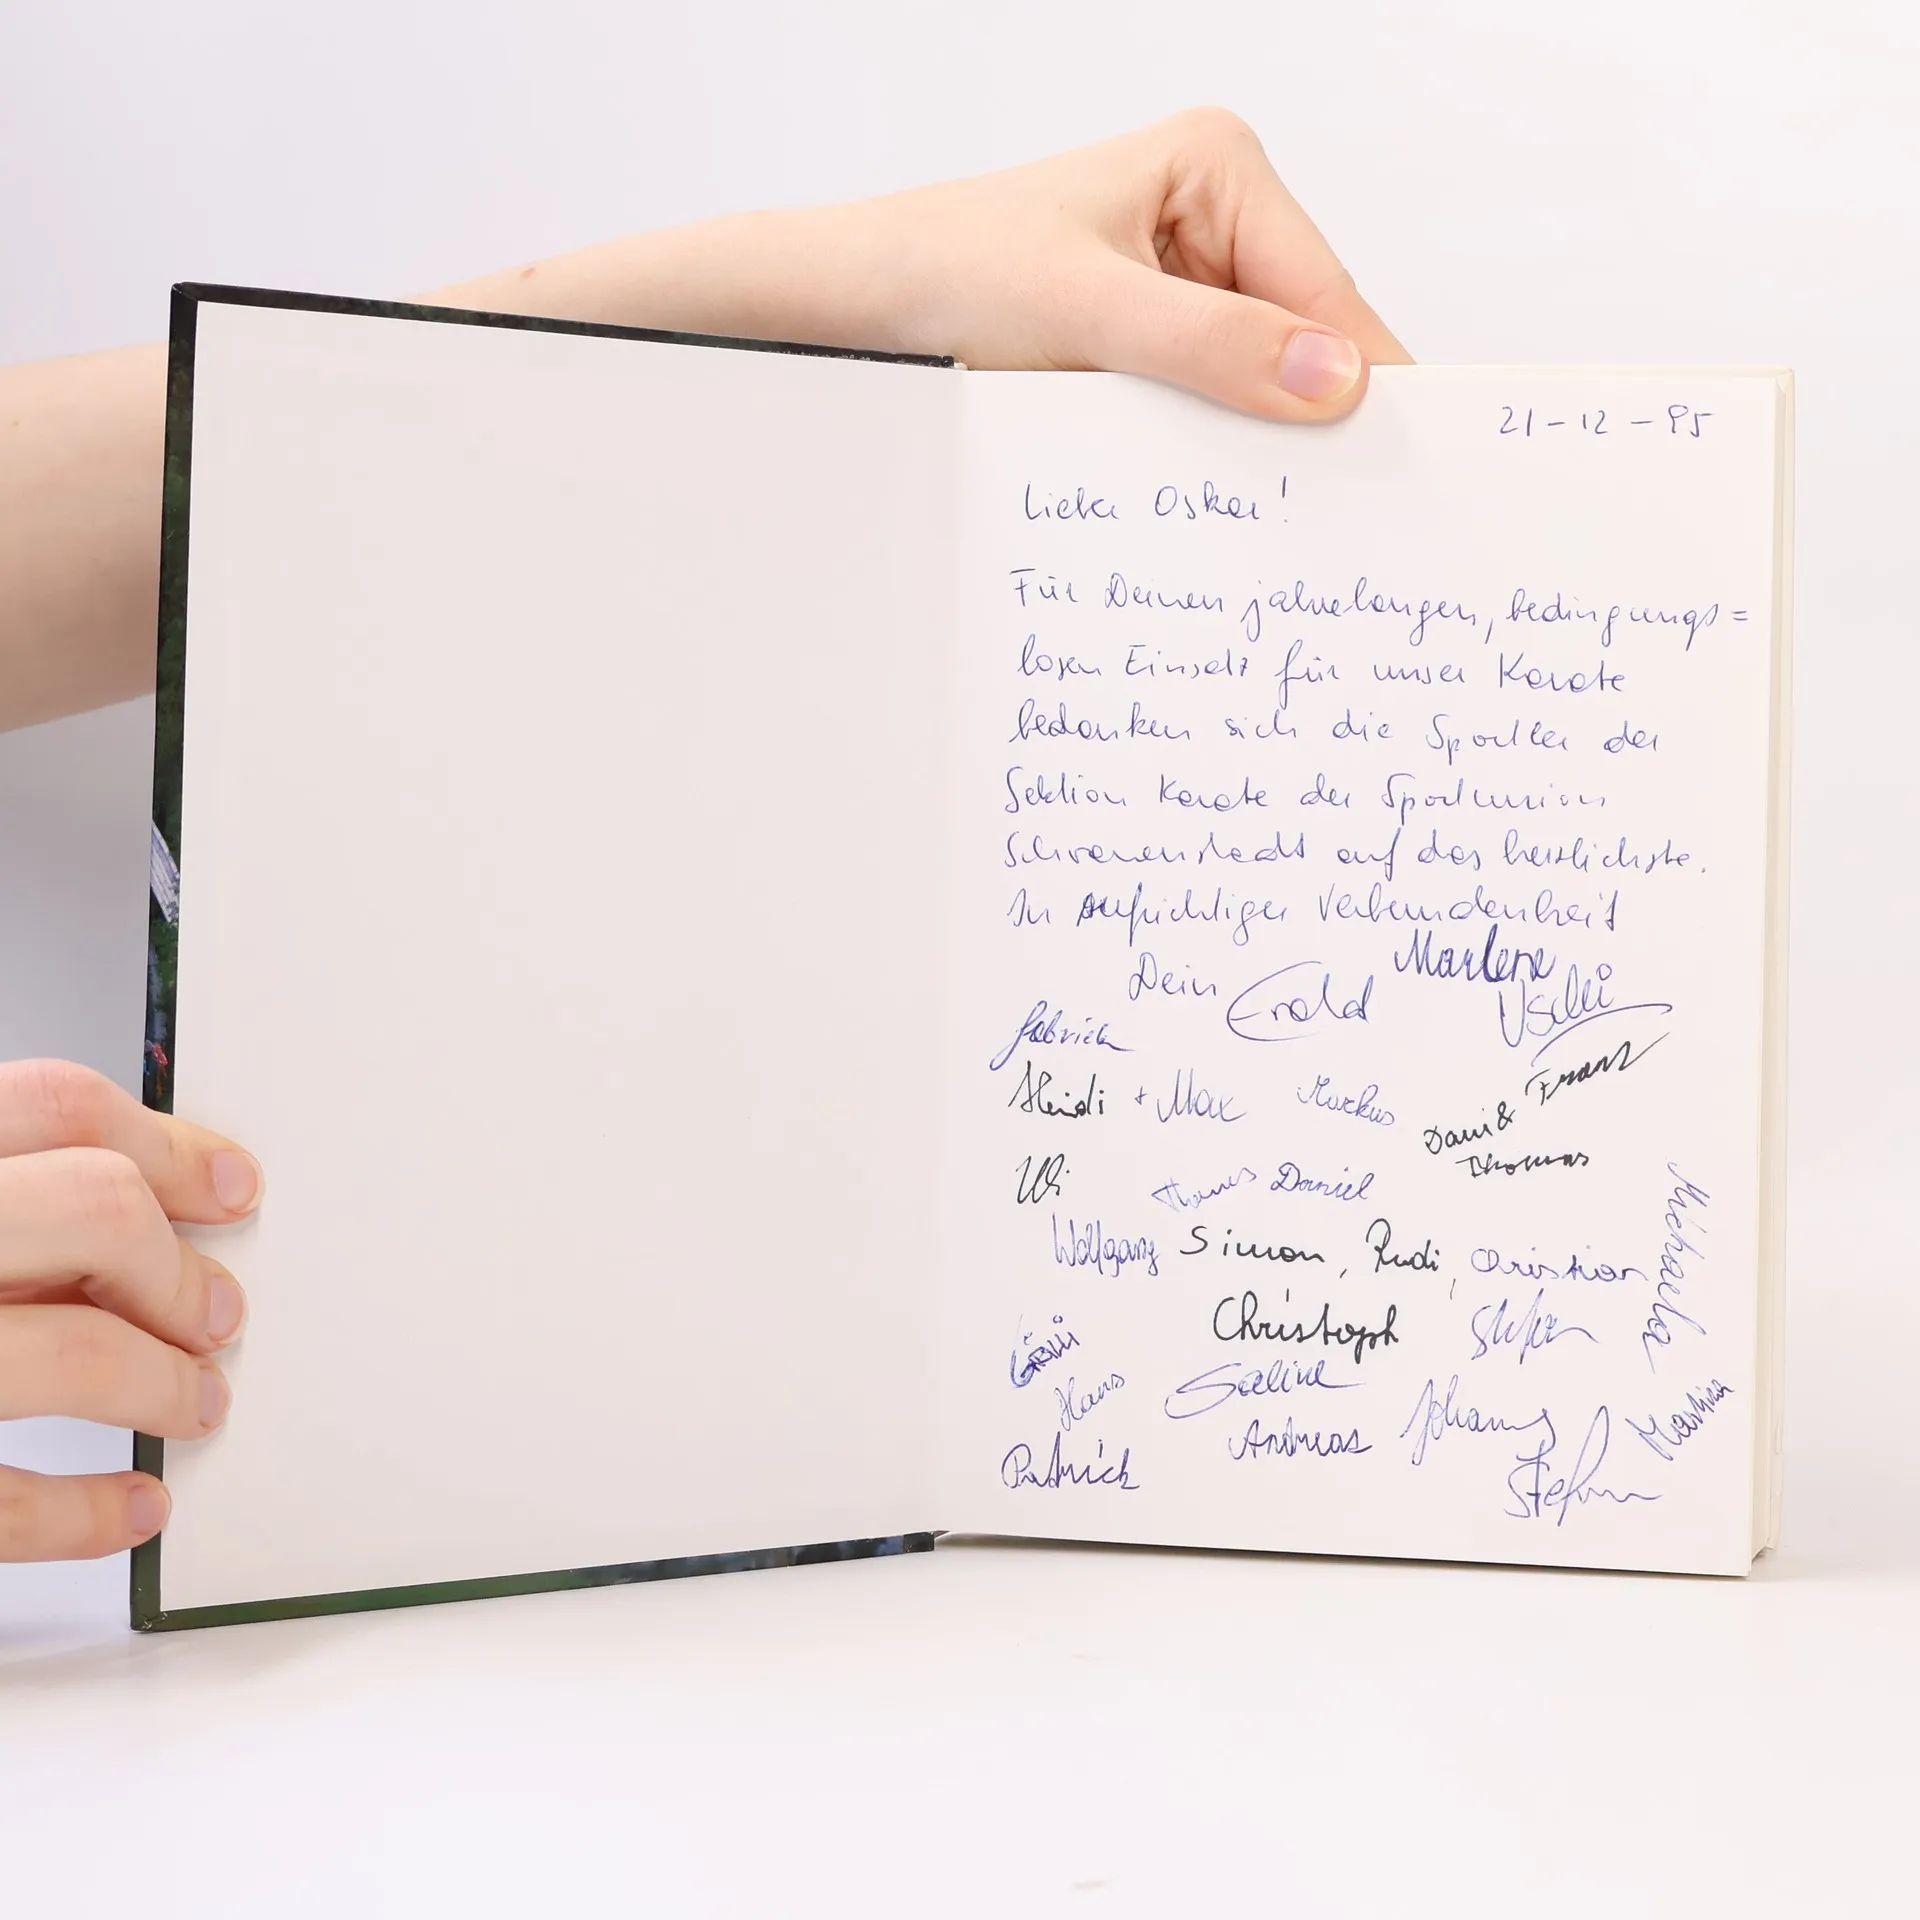 21-12-95
Lieber Oskar!
Für Deinen jahrelangen, bedingungs=
losen Einsatz für unser Karate
bedanken sich die Sportler der
Sektion Karate der Sportunion
Schwanenstadt auf das herzlichste.
In aufrichtiger Verbundenheit
Marlene
Dein Erald
Uschi
Gabriela
Franz
Heidi + Max Markus
Dani &
Thomas
Uli Daniel
Michaela
Wolfgang Simon, Rudi, Christian
Christoph Stefan
Hans Sabine
Johannes Martina
Andreas
Patrick Stefan